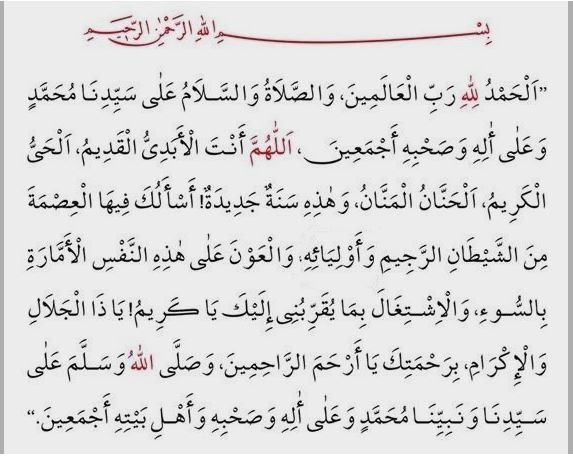 بِسْــــــمِ اللهِ الرَّحْمٰنِ الرَّحِيمِ
”اَلْحَمْدُ لِلّٰهِ رَبِّ الْعَالَمِينَ، وَالصَّلَاةُ وَالسَّـلَامُ عَلٰى سَيِّدِنَا مُحَمَّدٍ
وَعَلٰى أٰلِهِ وَصَحْبِهِ أَجْمَعِينَ، اَللّٰهُمَّ أَنْتَ الْأَبَدِىُّ الْقَدِيمُ، اَلْحَىُّ
الْكَرِيمُ، اَلْحَنَّانُ الْمَنَّانُ، وَهٰذِهِ سَنَةٌ جَدِيدَةٌ! أَسْأَلُكَ فِيهَا الْعِصْمَةَ
مِنَ الشَّيْطَانِ الرَّجِيمِ وَأَوْلِيَائِهِ، وَالْعَوْنَ عَلٰى هٰذِهِ النَّفْسِ الْأَمَّارَةِ
بِالسُّـوءِ، وَالْاِشْـتِغَالَ بِمَا يُقَرِّبُنِى إِلَيْكَ يَا كَرِيمُ! يَا ذَا الْجَلَالِ
وَالْإِكْرَامِ، بِرَحْمَتِكَ يَا أَرْحَمَ الرَّاحِمِينَ، وَصَلَّى اللهُ وَسَـلَّمَ عَلٰى
سَـيِّدِنَا وَنَبِيِّنَا مُحَمَّدٍ وَعَلٰى أٰلِهِ وَصَحْبِهِ وَأَهْلِ بَيْتِهِ أَجْمَعِينَ.“